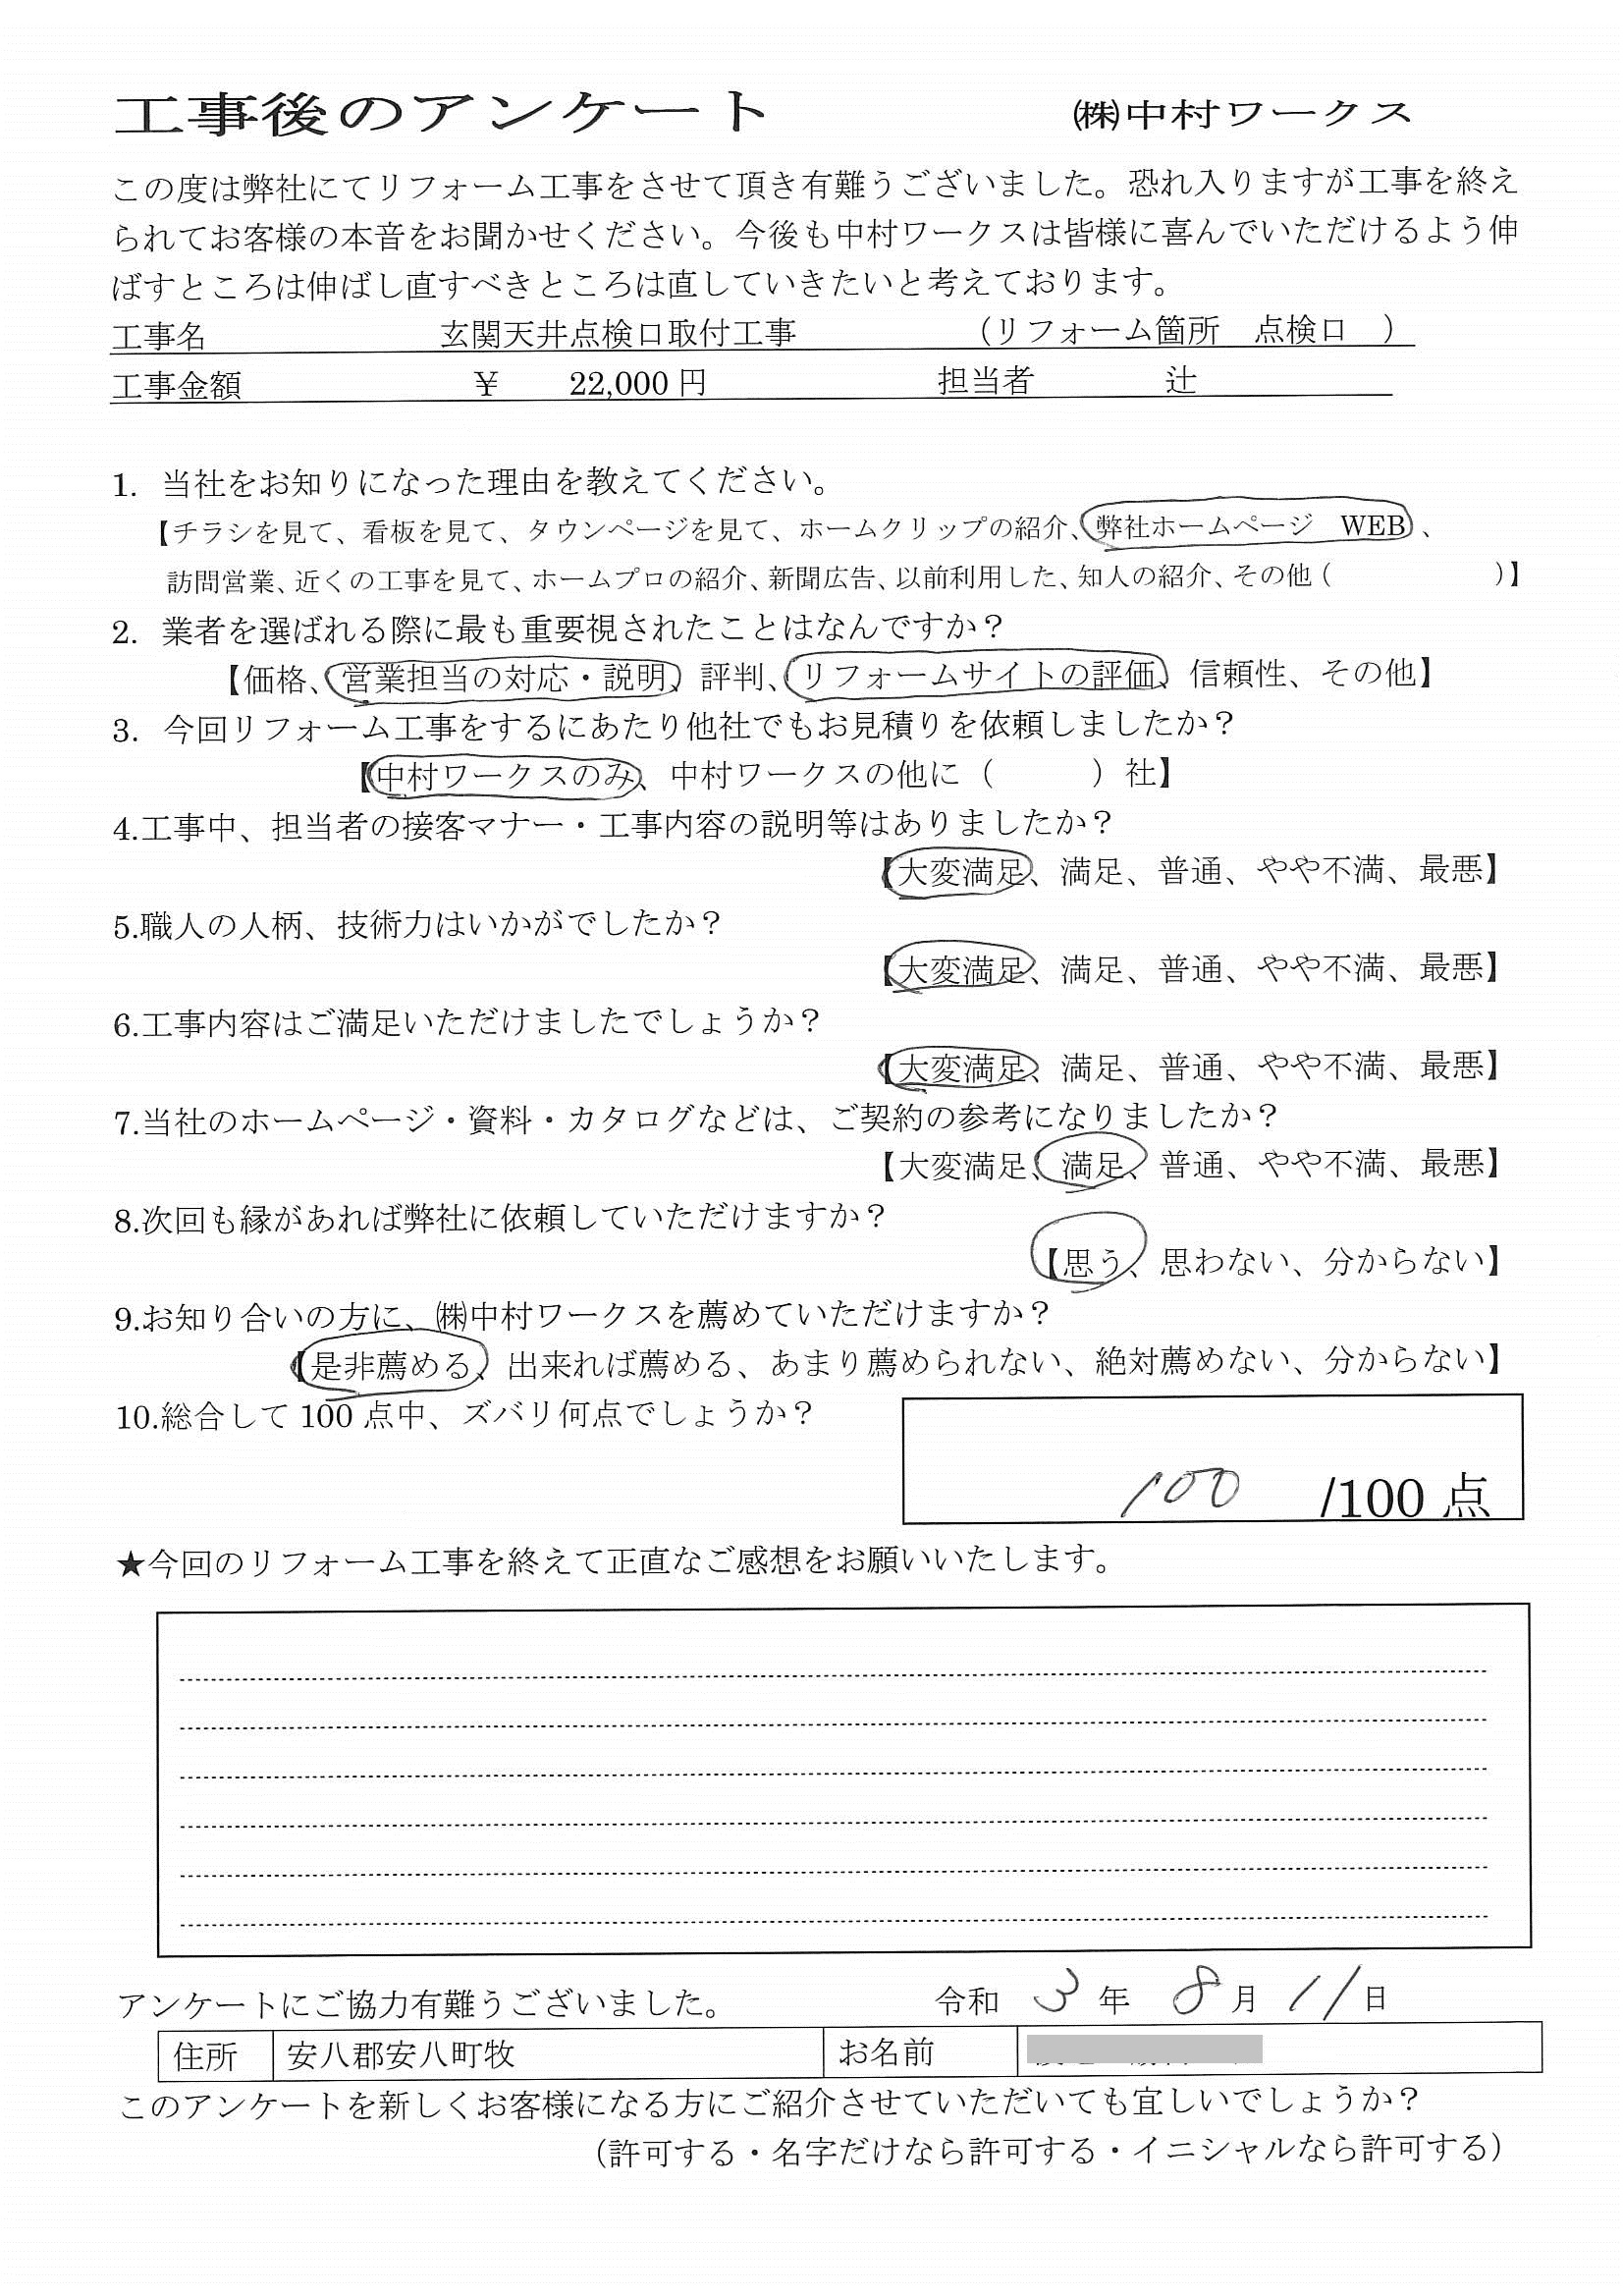 工事後のアンケート　㈱中村ワークス
この度は弊社にてリフォーム工事をさせて頂き有難うございました。恐れ入りますが工事を終え
られてお客様の本音をお聞かせください。今後も中村ワークスは皆様に喜んでいただけるよう伸
ばすところは伸ばし直すべきところは直していきたいと考えております。
工事名　玄関天井点検口取付工事　（リフォーム箇所　点検口　）
工事金額　¥　22,000 円　担当者　辻
1. 当社をお知りになった理由を教えてください。
【チラシを見て、看板を見て、タウンページを見て、ホームクリップの紹介、弊社ホームページ　WEB、
訪問営業、近くの工事を見て、ホームプロの紹介、新聞広告、以前利用した、知人の紹介、その他（　　　　　）】
2. 業者を選ばれる際に最も重要視されたことはなんですか？
【価格、営業担当の対応・説明、評判、リフォームサイトの評価、信頼性、その他】
3. 今回リフォーム工事をするにあたり他社でもお見積りを依頼しましたか？
【中村ワークスのみ、中村ワークスの他に（　　　）社】
4.工事中、担当者の接客マナー・工事内容の説明等はありましたか？
【大変満足、満足、普通、やや不満、最悪】
5.職人の人柄、技術力はいかがでしたか？
【大変満足、満足、普通、やや不満、最悪】
6.工事内容はご満足いただけましたでしょうか？
【大変満足、満足、普通、やや不満、最悪】
7.当社のホームページ・資料・カタログなどは、ご契約の参考になりましたか？
【大変満足、満足、普通、やや不満、最悪】
8.次回も縁があれば弊社に依頼していただけますか？
【思う、思わない、分からない】
9.お知り合いの方に、㈱中村ワークスを薦めていただけますか？
【是非薦める、出来れば薦める、あまり薦められない、絶対薦めない、分からない】
10.総合して 100 点中、ズバリ何点でしょうか？
100 /100 点
★今回のリフォーム工事を終えて正直なご感想をお願いいたします。
アンケートにご協力有難うございました。　令和 3 年 8 月 11 日
住所　安八郡安八町牧　お名前
このアンケートを新しくお客様になる方にご紹介させていただいても宜しいでしょうか？
（許可する・名字だけなら許可する・イニシャルなら許可する）